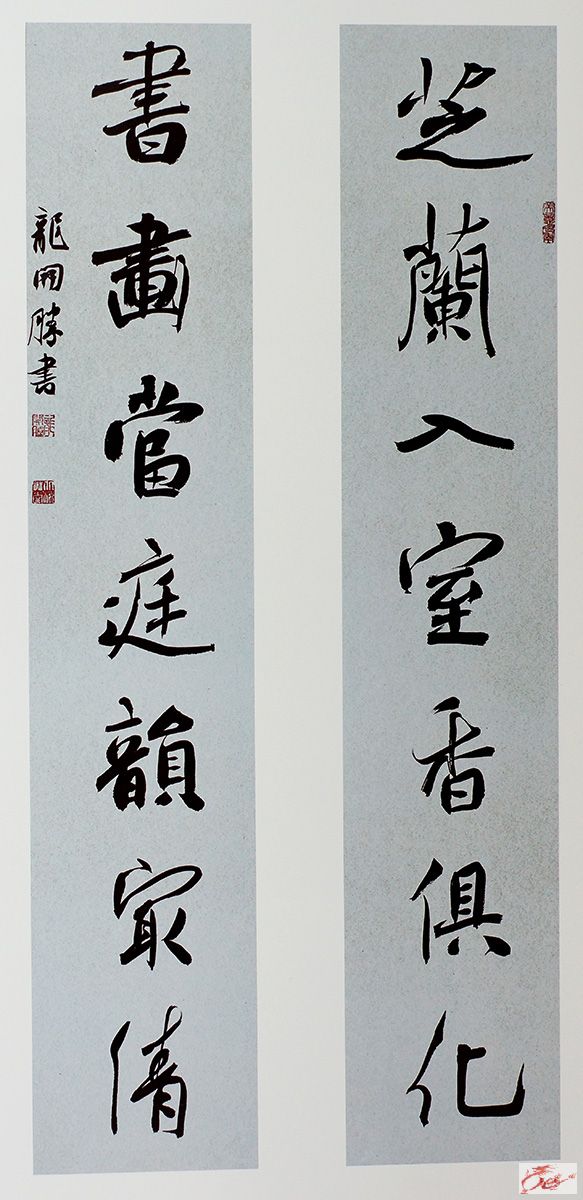 芝蘭入室香俱化
書畫當庭韻冣倩
龍開勝書